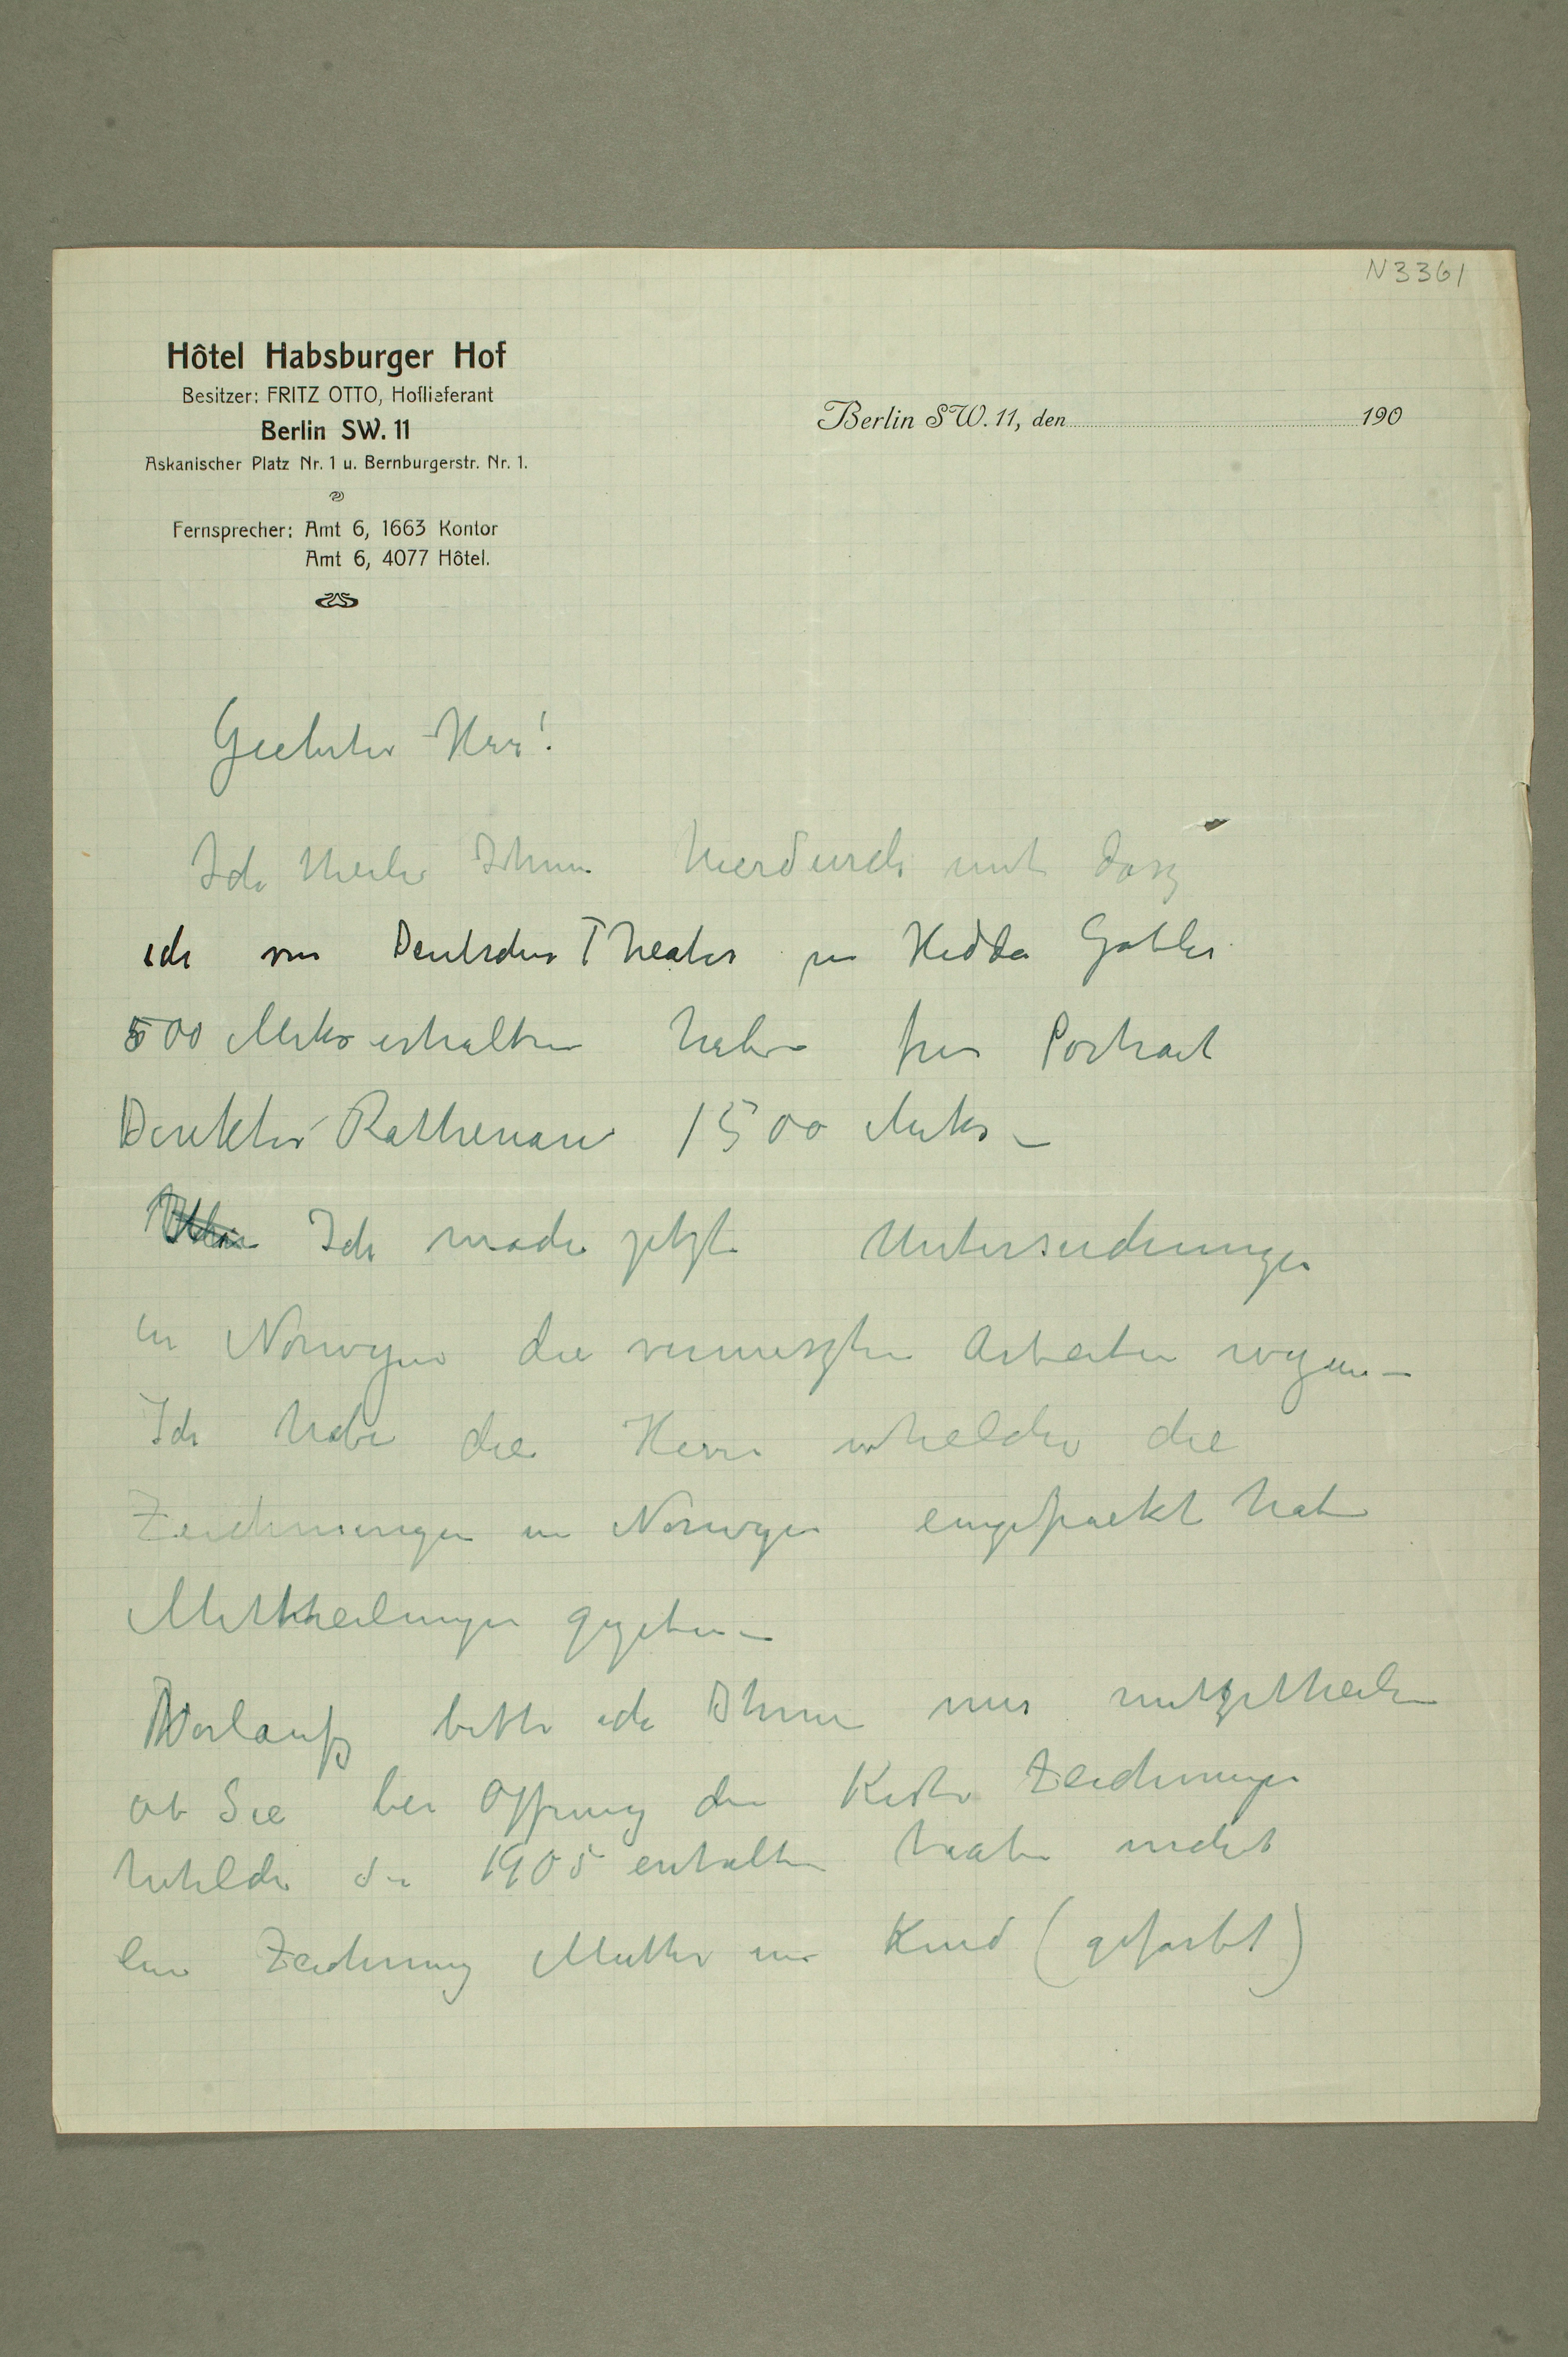 N 3361
Hôtel Habsburger Hof
Besitzer: FRITZ OTTO, Hoflieferant
Berlin SW. 11
Askanischer Platz Nr. 1 u. Bernburgerstr. Nr. 1.
Fernsprecher: Amt 6, 1663 Kontor
Amt 6, 4077 Hôtel.
Berlin SW. 11, den 190
Geehrter Herr!
Ich theile Ihnen hierdurch mit dasz
ich von Deutsches Theater in Hedda Gabler
500 Mark erhalten habe für Portrait
Direktor Rathenau 1500 Mark –
Ich mache jetzt Untersuchungen
in Norwegen die vermiszten Arbeiten wegen –
Ich habe die Herrn whelche die
Zeichnungen in Norwegen eingepackt hat
Mittheilungen gegeben –
Vorlaufig bitte ich Ihnen mir mitzutheilen
ob Sie bei Offnung der Kiste Zeichnungen
whelche Sie 1905 erhalten haabe nicht
eine Zeichnung Mutter und Kind (gefarbt)